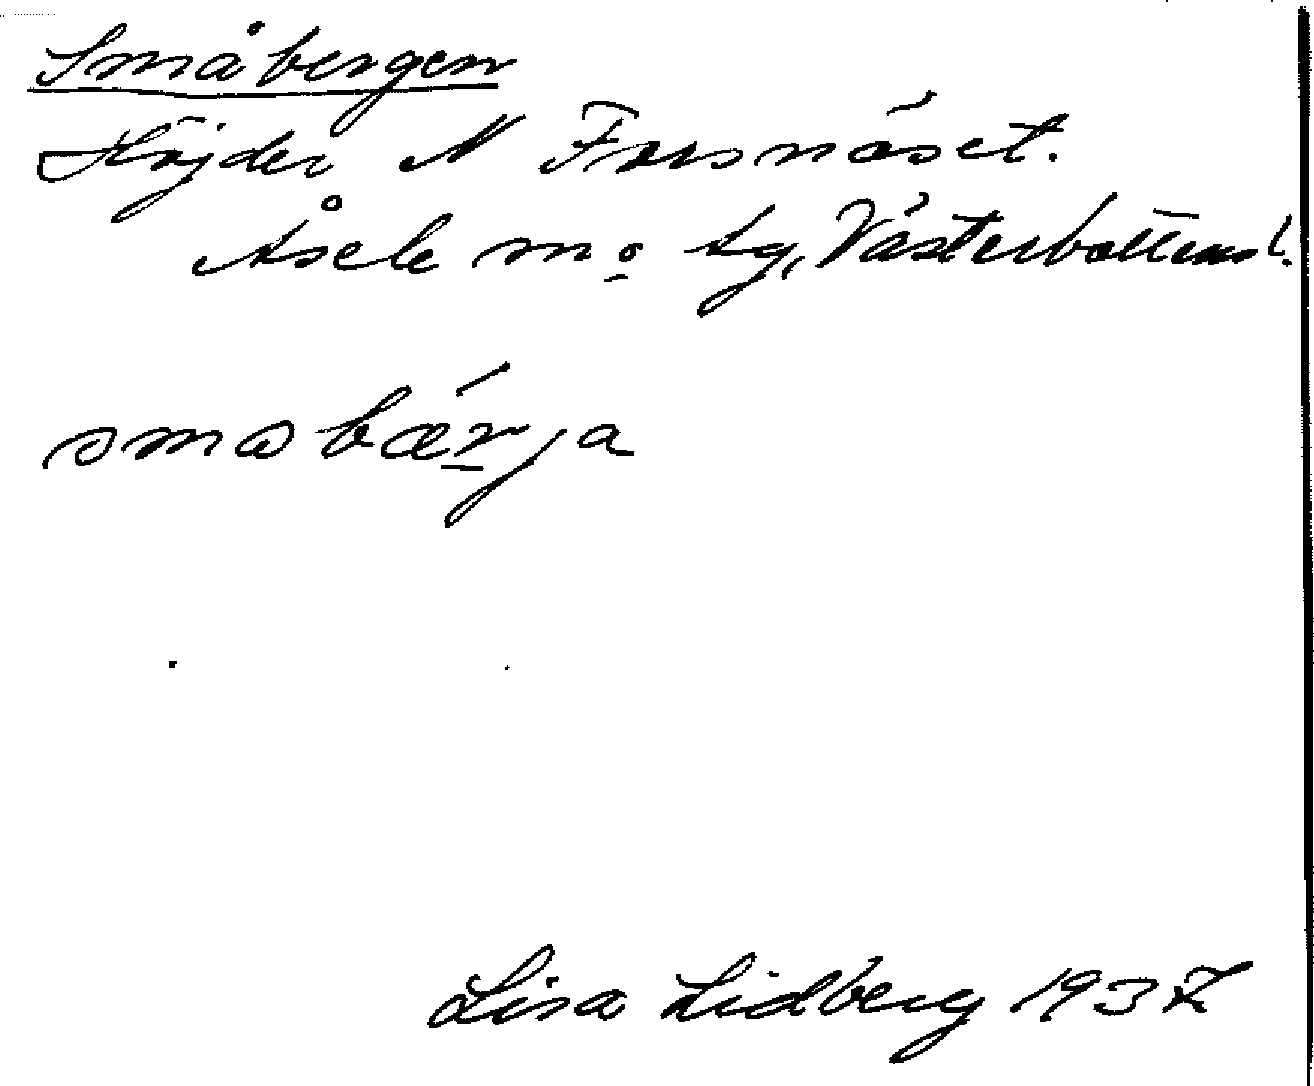 Småbergen
Höjder N Forsnäset.
Åsele m o lg, Västerbottens l.
småbærja
Lisa Lidberg 1937